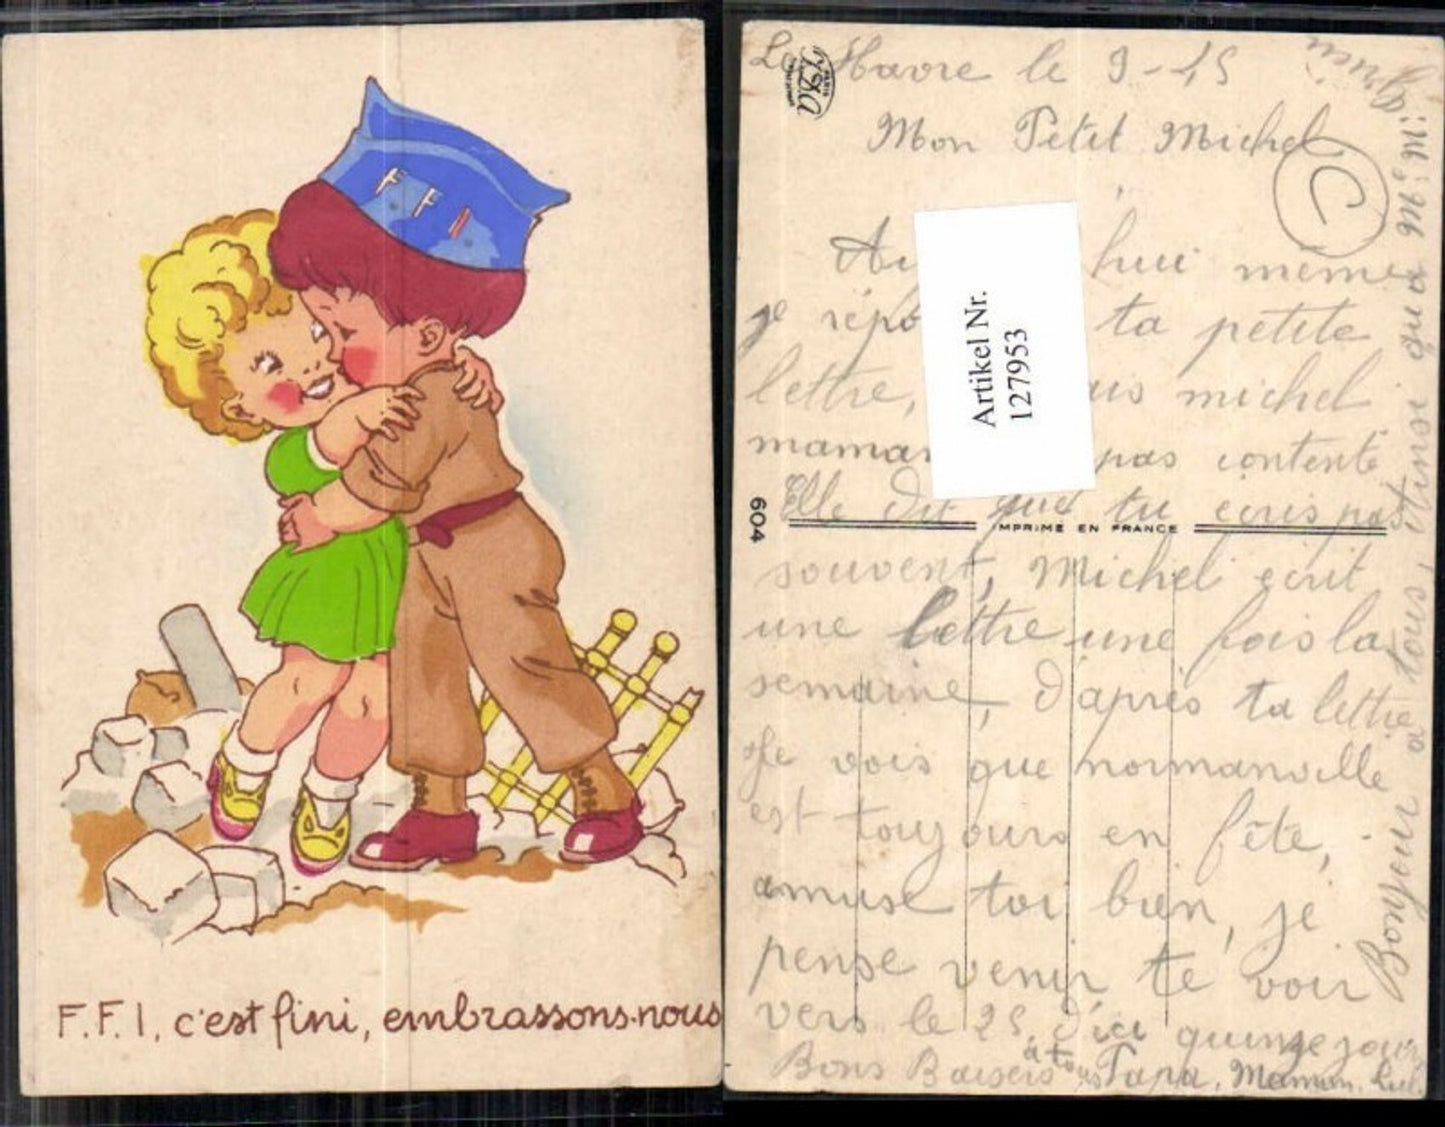 F F I
F.F.I, c'est fini, embrassons-nous
PARIS
Le Havre le 9-45
Mon Petit Michel
C
hui même
je ta petite
lettre, michel
pas contente
Elle dit que tu écris pas
604
IMPRIMÉ EN FRANCE
souvent, Michel écrit
une lettre une fois la
semaine, d'après ta lettre
Je vois que normanville
est toujours en fête,
amuse toi bien, je
pense venir te voir
vers le 25, d'ici quinze jours
Bons Baisers à tous Papa, Maman,
Bonjour à tous, Ainsi qu'à Mr Mme
Artikel Nr.
127953